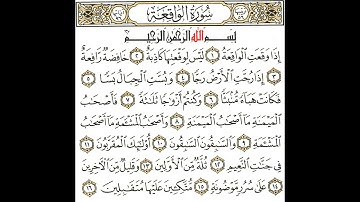 سُورَةُ الوَاقِعَةِ
بِسْمِ اللَّهِ الرَّحْمَٰنِ الرَّحِيمِ
إِذَا وَقَعَتِ الْوَاقِعَةُ ١ لَيْسَ لِوَقْعَتِهَا كَاذِبَةٌ ٢ خَافِضَةٌ رَّافِعَةٌ
٣ إِذَا رُجَّتِ الْأَرْضُ رَجًّا ٤ وَبُسَّتِ الْجِبَالُ بَسًّا ٥
فَكَانَتْ هَبَاءً مُّنبَثًّا ٦ وَكُنتُمْ أَزْوَاجًا ثَلَاثَةً ٧ فَأَصْحَابُ
الْمَيْمَنَةِ مَا أَصْحَابُ الْمَيْمَنَةِ ٨ وَأَصْحَابُ الْمَشْـَٔمَةِ مَا أَصْحَابُ
الْمَشْـَٔمَةِ ٩ وَالسَّابِقُونَ السَّابِقُونَ ١٠ أُولَٰئِكَ الْمُقَرَّبُونَ ١١
فِي جَنَّاتِ النَّعِيمِ ١٢ ثُلَّةٌ مِّنَ الْأَوَّلِينَ ١٣ وَقَلِيلٌ مِّنَ الْآخِرِينَ
١٤ عَلَىٰ سُرُرٍ مَّوْضُونَةٍ ١٥ مُّتَّكِـِٔينَ عَلَيْهَا مُتَقَابِلِينَ ١٦